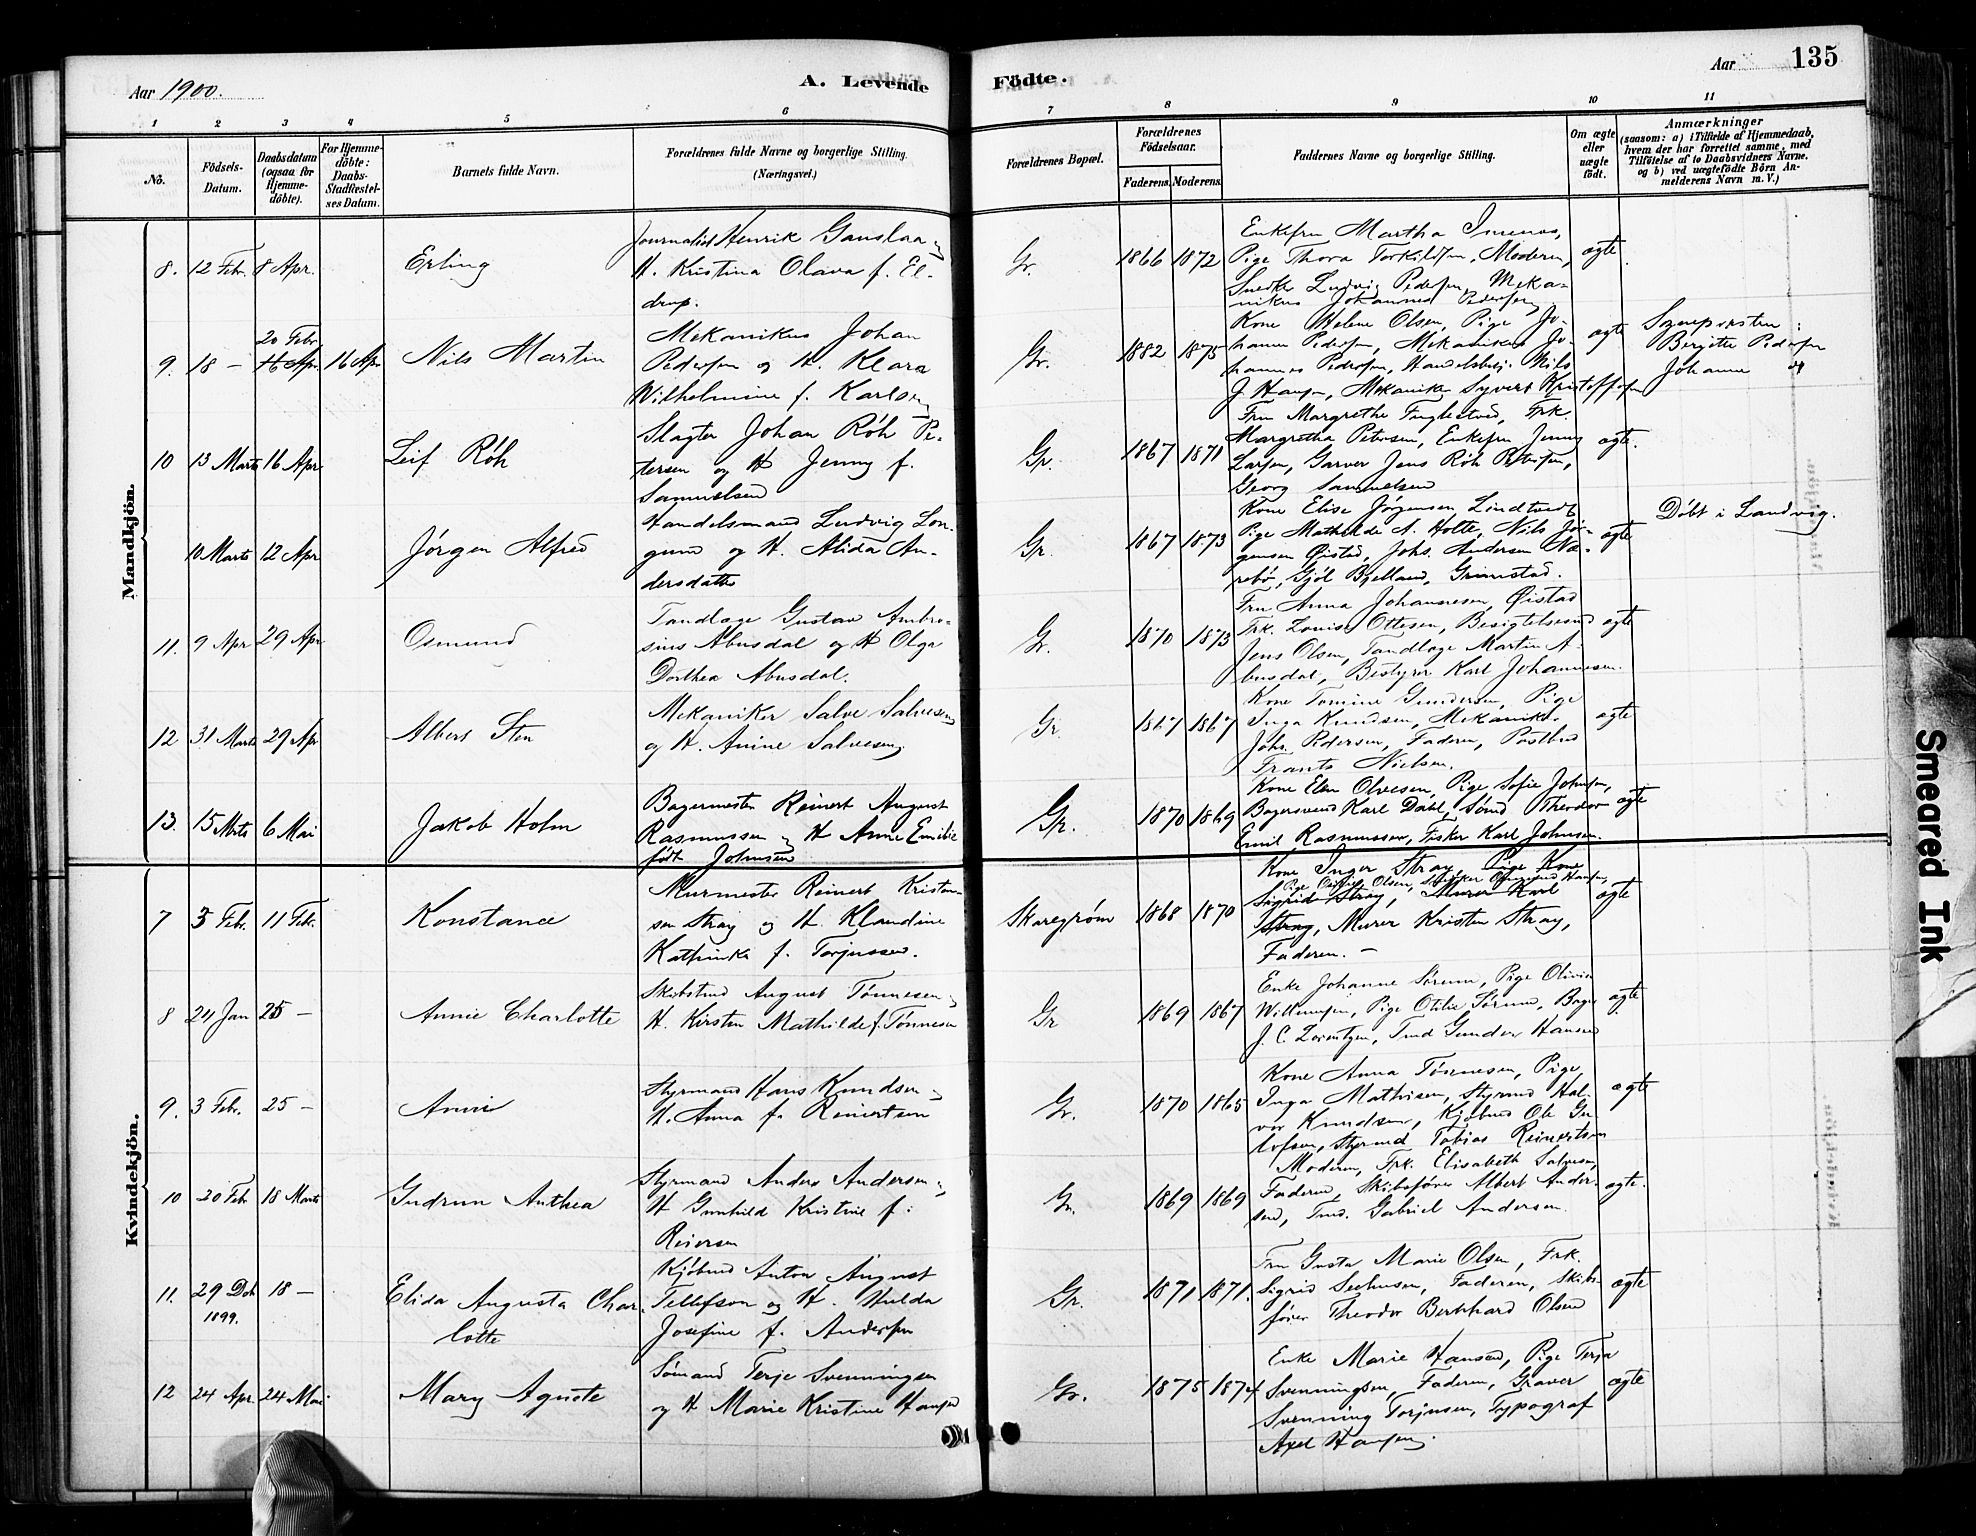 Aar 1900.
A. Levende
Födte.
Aar
135
1 2 3 4 5 6 7 8 9 10 11
No.
Födsels-
Datum.
Daabsdatum
(ogsaa for
Hjemme-
döbte).
For Hjemme-
döbte:
Daabs-
Stadfæstel-
ses Datum.
Barnets fulde Navn.
Forældrenes fulde Navne og borgerlige Stilling.
(Næringsvei.)
Forældrenes Bopæl.
Forældrenes
Födselsaar.
Faderens. Moderens.
Faddernes Navne og borgerlige Stilling.
Om ægte
eller
uægte
födt.
Anmærkninger
(saasom: a) i Tilfælde af Hjemmedaab,
hvem der har forrettet samme, med
Tilföielse af to Daabsvidners Navne,
og b) ved uægtefödte Börn An-
melderens Navn m. V.)
Mandkjön.
8. 12 Febr. 8 Apr.
Erling
Journalist Henrik Gauslaa og
H. Kristina Olava f. El-
drup.
Gr.
1866 1872
Enkefru Martha
Pige Thora Torkildsen, Moderen,
Snedker Ludvig Pedersen, Meka-
nikus Johannes Pedersen
ægte
9. 18 –
20 Febr
16 Apr. 16 Apr
Nils Martin
Mekanikus Johan
Pedersen og H. Klara
Wilhelmine f. Karlsen
Gr.
1882 1875
Kone Helene Olsen, Pige Jo-
hanne Pedersen, Mekanikus Jo-
hannes Pedersen, Handelsbesj. Nils
J. Hansen, Mekaniker Syvert Kristoffersen
ægte
Sognepresten:
Berjitte Pedersen
Johanne
10 13 Marts 16 Apr
Leif Röh
Slagter Johan Röh Pe-
tersen og H. Jenny f.
Samuelsen
Gr.
1867 1871
Fru Margrethe Fuglestved, Frk.
Margretha Petersen, Enkefru Jenny
Larsen, Garver Jens Röh Petersen,
Georg Samuelsen
ægte.
10 Marts 12 Apr
Jørgen Alfred
Handelsmand Ludvig Lon-
gum og H. Alida An-
dersdatter
Gr.
1867 1873
Kone Elise Jørgensen, Lindtved,
Pige Mathilde A. Holte, Nils Jør-
gensen Øistad, Johs. Andersen Næ-
rebø, Gjøl Bjelland, Grimstad.
ægte
Döbt i Landvig.
11. 9 Apr 29 Apr
Osmund
Tandlæge Gustav Ambro-
sius Abusdal og H Olga
Dorthea Abusdal.
Gr.
1870 1873
Fru Anna Johannesen, Øistad
Frk. Louise Ottesen, Besigtelsesmd
Jens Olsen, Tandlæge Martin A-
busdal, Bestyrer Karl Johannesen.
ægte
12 31 Marts 29 Apr
Albert Sten
Mekaniker Salve Salvesen
og H. Anine Salvesen.
Gr.
1867 1867
Kone Tomine Gundersen, Pige
Inga Knudsen, Mekaniker
Johs. Pedersen, Faderen, Postbud
Frants Nielsen.
ægte
13. 15 Mrts 6 Mai
Jakob Holm
Bagermester Reinert August
Rasmussen og H Anne Emilie
födt Johnsen
Gr.
1870 1869
Kone Elen Olvesen, Pige Sofie Johnsen,
Bagersvend Karl Dahl, Sömd Theodor
Emil Rasmussen, Fisker Karl Johnsen.
ægte
Kvindekjön.
7 3 Febr. 11 Febr.
Konstance
Murmester Reinert Kristen
sen Stray og H. Klaudine
Kathinka f. Torjussen.
Skaregrøm
1868 1870
Kone Inger Stray, Pige Kone
Pige Olsen, Snedker Hansen,
Sigrid Stray, Murer Karl
Stray, Murer Kristen Stray,
Faderen. –
ægte
8 24 Jan 25 –
Annie Charlotte
Skibstmd August Tönnesen og
H. Kirsten Mathilde f. Tönnesen
Gr
1869 1867
Enke Johanne Sörensen, Pige Olivia
Willumsen, Pige Otilie Sörensen, Bager
J. C. Lorentzen, Tmd Gunder Hansen
ægte
9. 3 Febr. 25 –
Annie
Styrmand Hans Knudsen og
H. Anna f. Reinertsen
Gr.
1870 1865
Kone Anna Tönnesen, Pige
Inga Mathisen, Styrmd Hal-
vor Knudsen, Kjøbmd Ole Gu-
lofsen, Styrmd Tobias Reinertsen
ægte
10 20 Feb 18 Marts
Gudrun Anthea
Styrmand Anders Andersen og
H Gunhild Kristine f.
Reiersen
Gr.
1869 1869
Moderen, Frk. Elisabeth Salvesen,
Faderen, Skibsfører Albert Ander-
sen, Tmd. Gabriel Andersen.
ægte.
11. 29 Dcb 18 –
1899.
Elida Augusta Char
lotte
Kjöbmd Anton August
Tellefsen og H. Hulda
Josefine f. Andersen
Gr.
1871 1871.
Fru Gusta Marie Olsen, Frk.
Sigrid Seehusen, Faderen, Skibs-
fører Theodor Bernhard Olsen
ægte
12 24 Apr. 24 Mai
Mary Agnete
Sömand Terje Svenningsen
og H Marie Kristine Hansen
Gr.
1875 1874
Enke Marie Hansen, Pige Terja
Svenningsen, Faderen, Graver
Svenning Torjusen, Typograf
Axel Hansen.
ægte
Smeared Ink